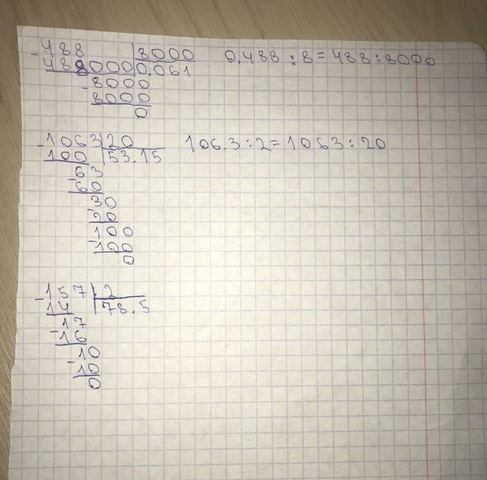 488 8000 0,488 : 8 = 488 : 8000
4880000 0,061
8000
8000
0
1063 20 106.3 : 2 = 1063 : 20
100 53.15
63
60
30
20
100
100
0
157 2
14 78.5
17
16
10
10
0